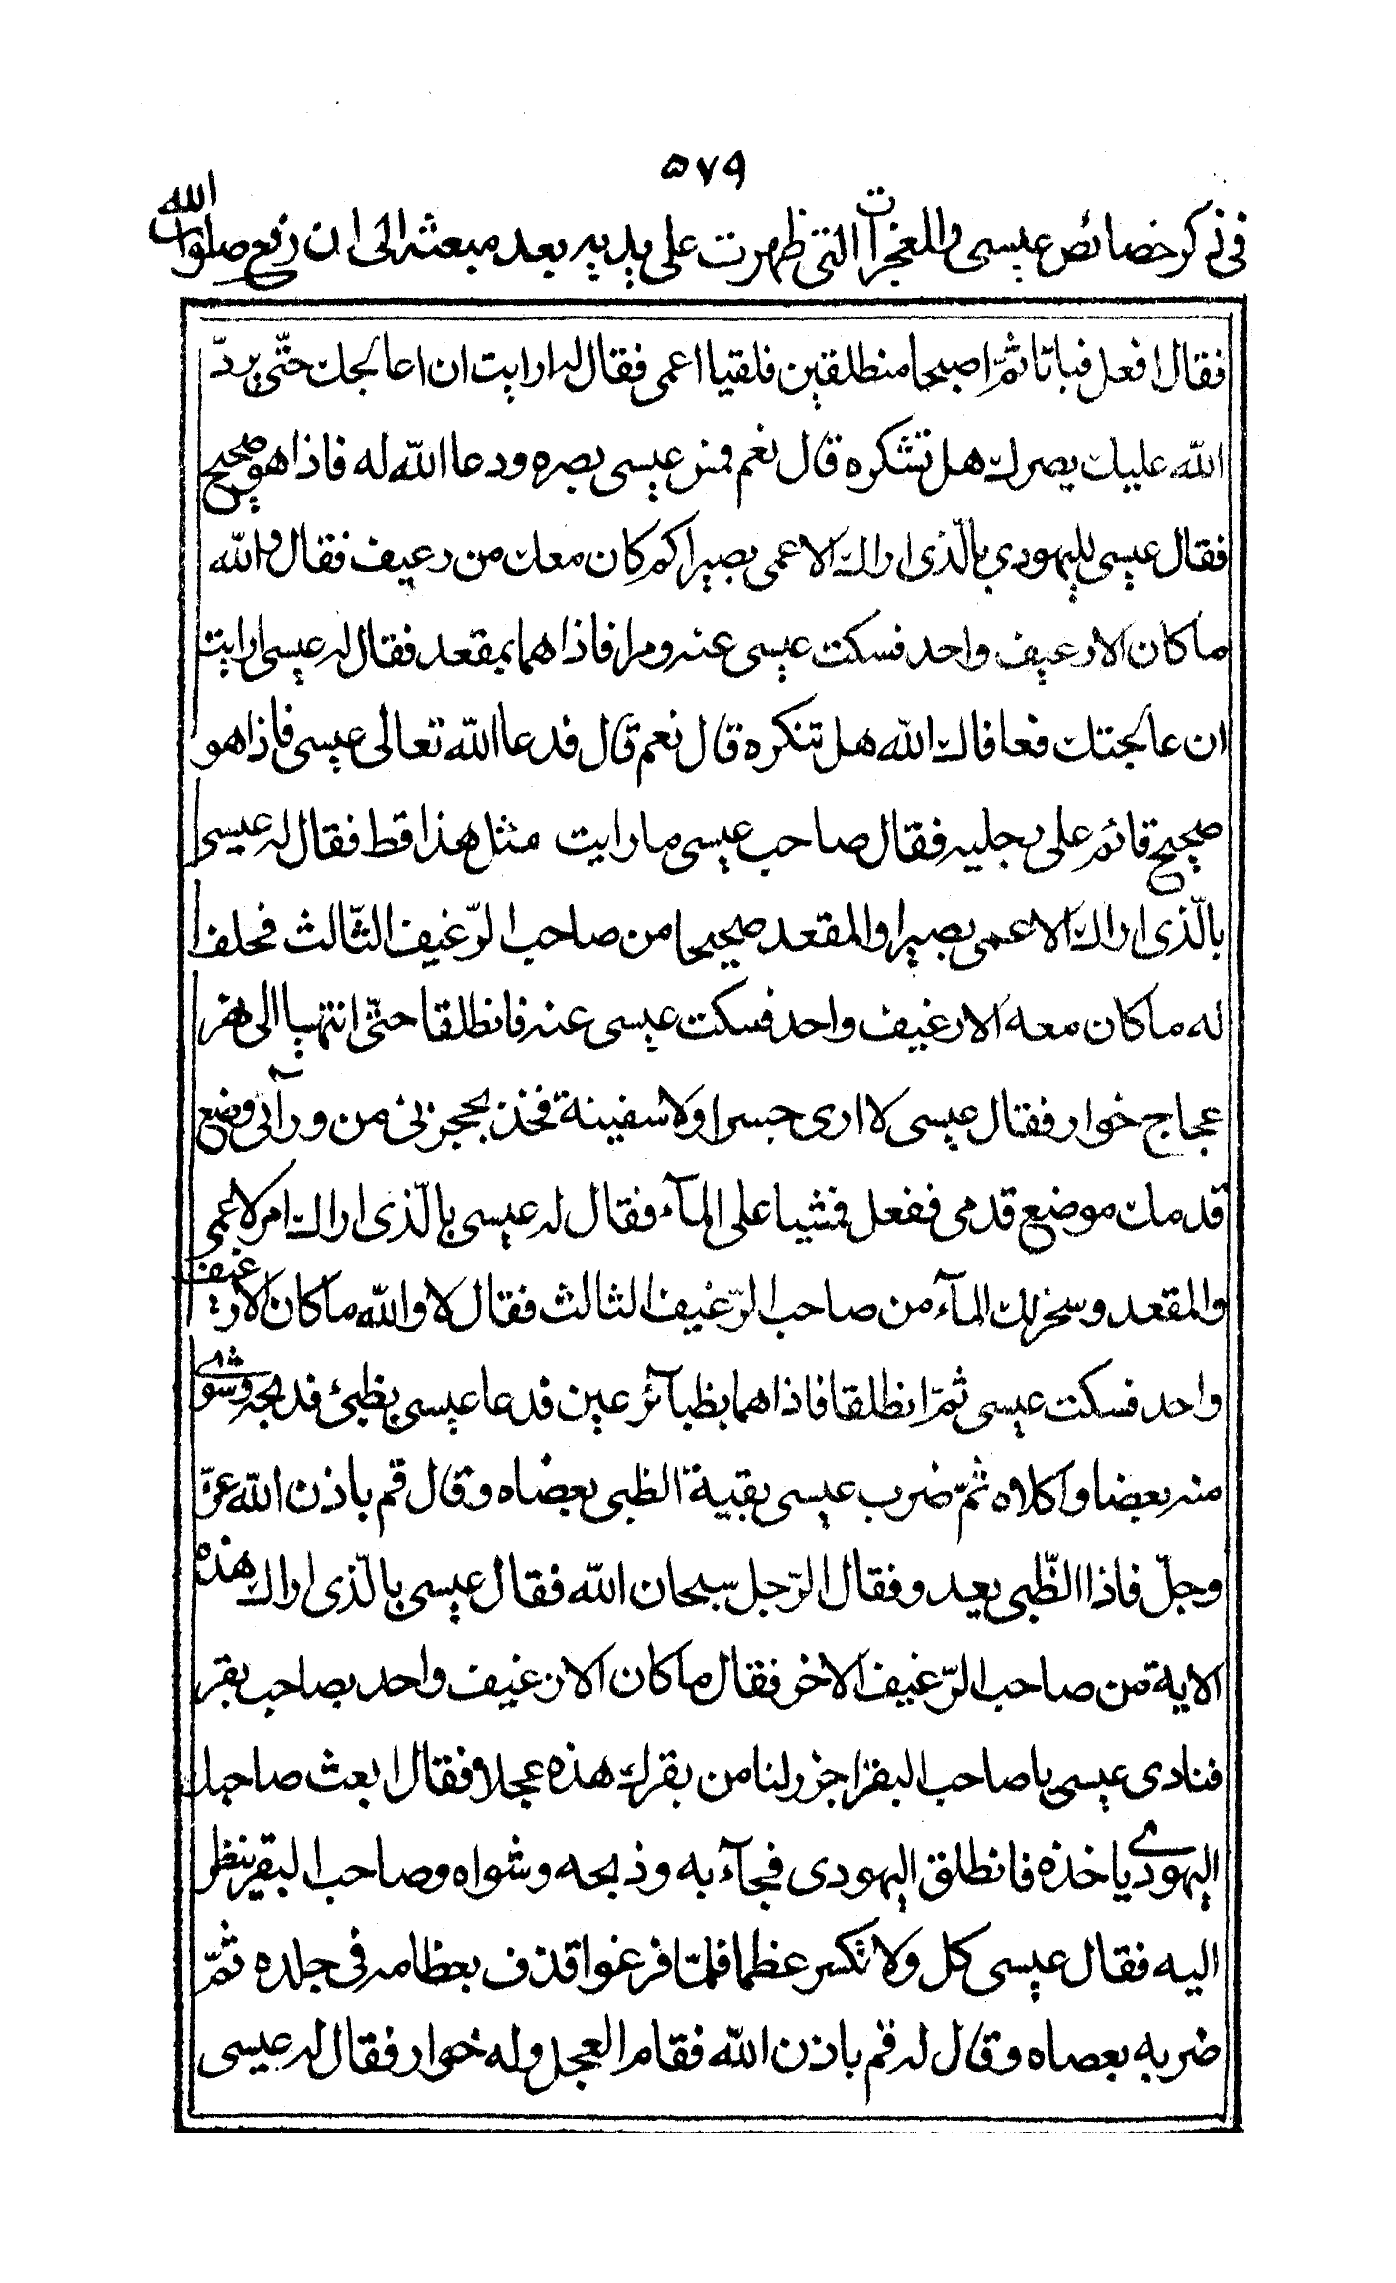 ۵۷۹
في ذكر خصائص عيسى والمعجزات التي ظهرت على يديه بعد مبعثه الى ان رفع صلوات الله
فقال افعل فباتا ثمّ اصبحا منطلقين فلقيا اعمى فقال له ارايت ان اعالجك حتّى يردّ
الله عليك بصرك هل تشكره قال نعم فمس عيسى بصره ودعا الله له فاذا هو صحيح
فقال عيسى لليهودي بالّذى اراك الاعمى بصيرا كم كان معك من رغيف فقال والله
ما كان الا رغيف واحد فسكت عيسى عنه ومرا فاذا هما بمقعد فقال له عيسى ارايت
ان عالجتك فعافاك الله هل تشكره قال نعم قال فدعا الله تعالى عيسى فاذا هو
صحيح قائم على رجليه فقال صاحب عيسى ما رايت مثل هذا قط فقال له عيسى
بالّذى اراك الاعمى بصيرا والمقعد صحيحا من صاحب الرّغيف الثّالث فحلف
له ما كان معه الا رغيف واحد فسكت عيسى عنه فانطلقا حتّى انتهيا الى نهر
عجاج خوار فقال عيسى لا ارى جسرا ولا سفينة فخذ بحجزتى من ورآئى وضع
قدمك موضع قدمى ففعل فمشيا على المآء فقال له عيسى بالّذى اراك امر الاعمى
والمقعد وسخر لك المآء من صاحب الرّغيف الثالث فقال لا والله ما كان الا رغيف
واحد فسكت عيسى ثمّ انطلقا فاذا هما بظبآء يرعين فدعا عيسى بظبى فذبحه وشوى
منه بعضا واكلاه ثمّ ضرب عيسى بقية الظبى بعصاه وقال قم باذن الله عزّ
وجلّ فاذا الظّبى يعدو فقال الرّجل سبحان الله فقال عيسى بالّذى اراك هذه
الاية من صاحب الرّغيف الاخر فقال ما كان الا رغيف واحد بصاحب بقر
فنادى عيسى يا صاحب البقر اجزر لنا من بقرك هذه عجلا فقال ابعث صاحبك
اليهودى ياخذه فانطلق اليهودى فجآء به وذبحه وشواه وصاحب البقر ينظر
اليه فقال عيسى كل ولا تكسر عظما فلمّا فرغوا قذف بعظامه فى جلده ثمّ
ضربه بعصاه وقال له قم باذن الله فقام العجل وله خوار فقال له عيسى